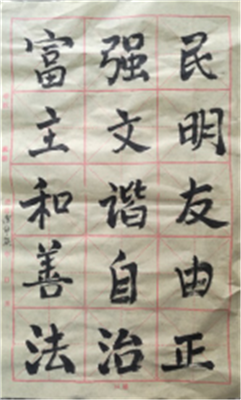 富强民
主文明
和谐友
善自由
法治正